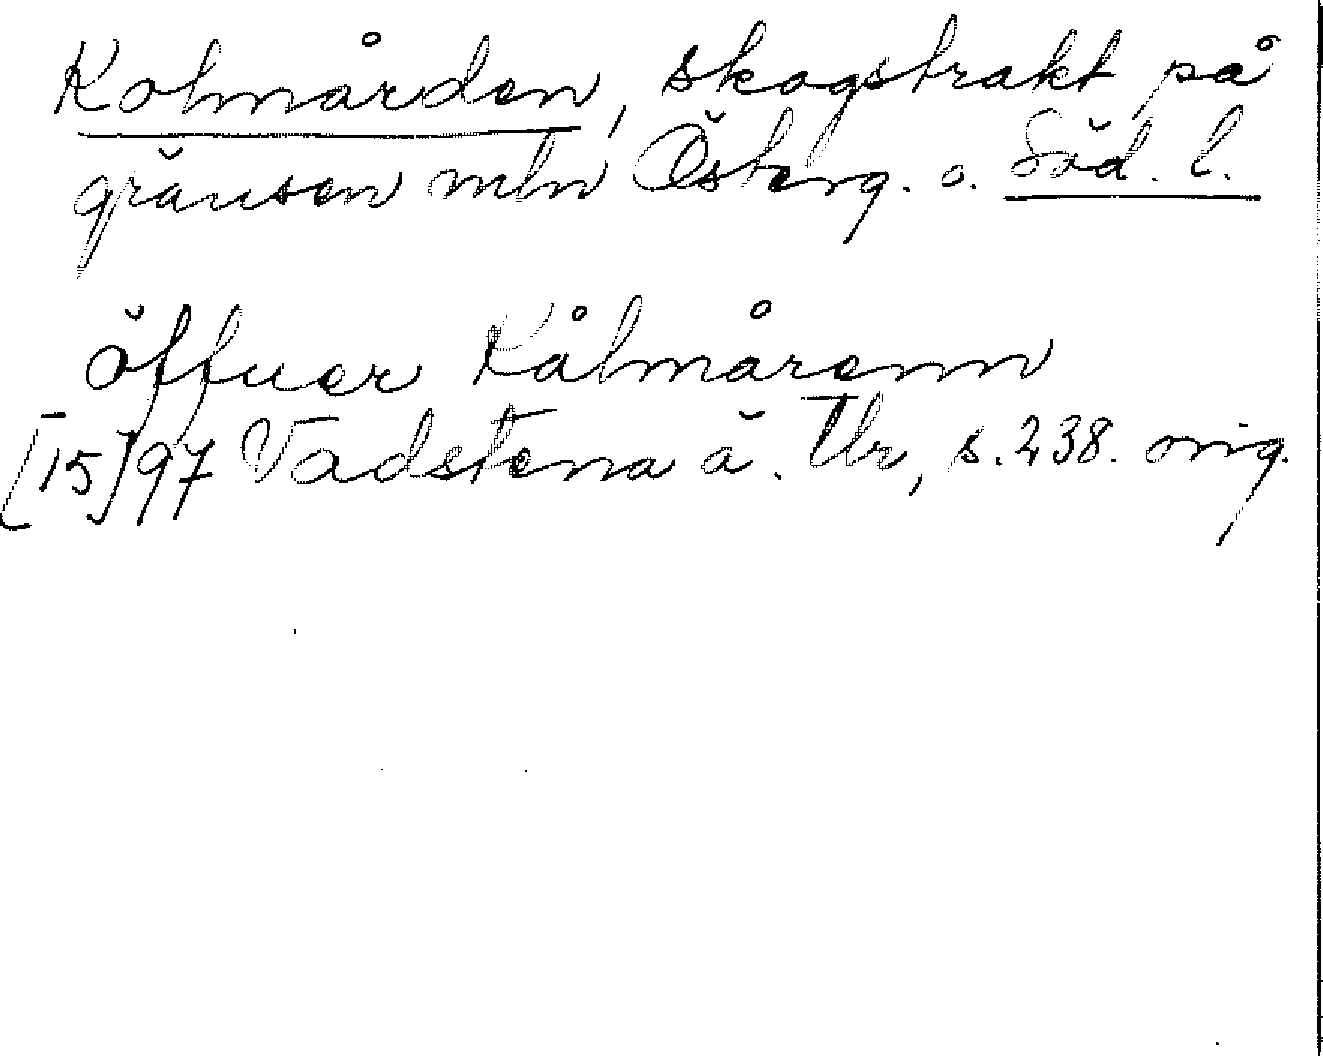 Kolmården, skogstrakt på
gränsen mln Österg. o. Söd. l.
öffuer Kålmårenn
[15]97 Vadstena ä. Tbr, s. 238. orig.